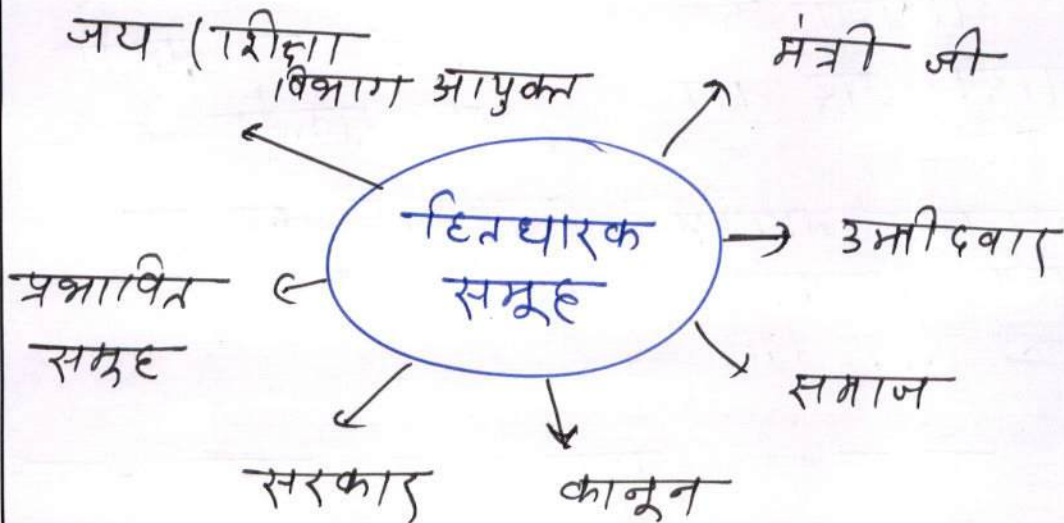 जय (शिक्षा
विभाग आयुक्त
मंत्री जी
हितधारक
समूह
उम्मीदवार
प्रभावित
समूह
समाज
सरकार
कानून